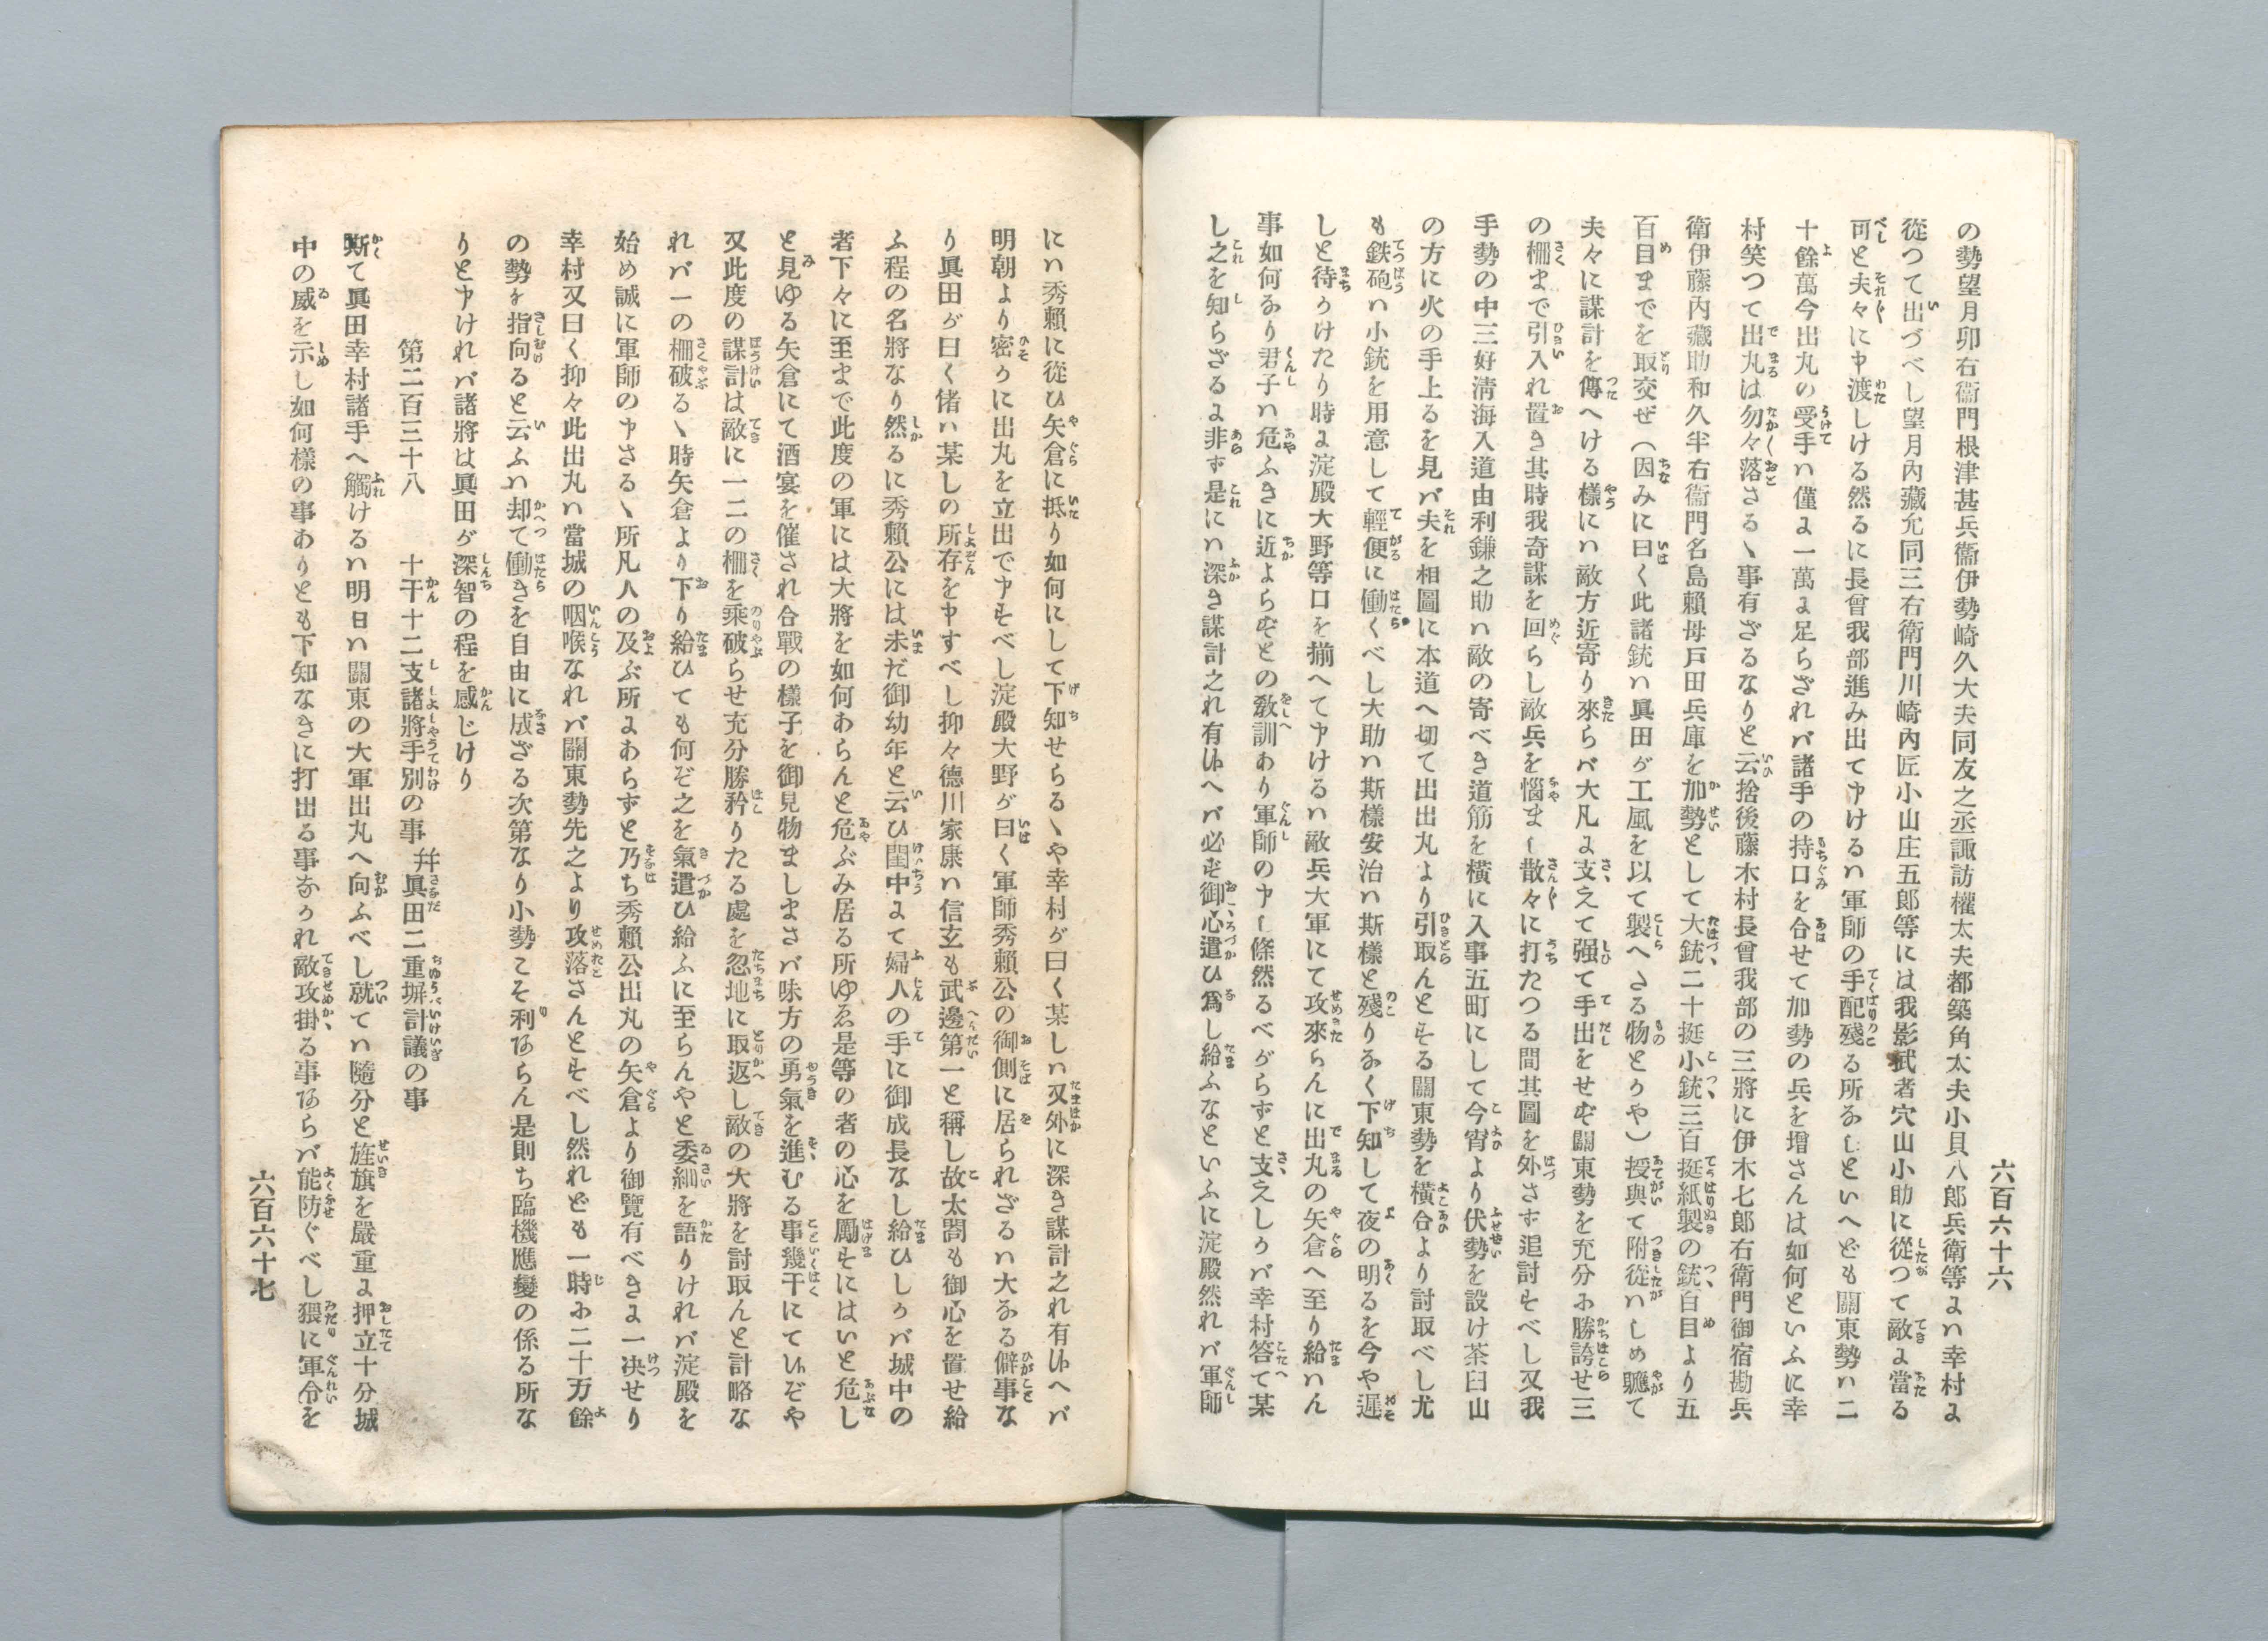 六百六十六
の勢望月卯右衞門根津甚兵衞伊勢崎久大夫同友之丞諏訪權太夫都築角太夫小貝八郎兵衛等よハ幸村よ
從つて出づべし望月內藏允同三右衛門川崎內匠小山庄五郎等には我影武者穴山小助に從つて敵よ當る
可と夫々に申渡しける然るに長曾我部進み出て申けるハ軍師の手配殘る所なしといへども關東勢ハ二
十餘萬今出丸の受手ハ僅よ一萬よ足らざれバ諸手の持口を合せて加勢の兵を増さんは如何といふに幸
村笑つて出丸は勿々落さるヽ事有ざるなりと云捨後藤木村長曾我部の三將に伊木七郎右衛門御宿勘兵
衛伊藤內藏助和久半右衞門名島賴母戸田兵庫を加勢として大銃二十挺小銃三百挺紙製の銃百目より五
百目までを取交ぜ(因みに曰く此諸銃ハ眞田が工風を以て製へさる物とかや)授與て附從ハしめ軈て
夫々に謀計を傳へける樣にハ敵方近寄り來らバ大凡よ支えて强て手出をせず關東勢を充分お勝誇せ三
の柵まで引入れ置き其時我奇謀を回らし敵兵を惱まし散々に打たつる間其圖を外さず追討すべし又我
手勢の中三好淸海入道由利鎌之助ハ敵の寄べき道筋を橫に入事五町にして今宵より伏勢を設け茶臼山
の方に火の手上るを見バ夫を相圖に本道へ切て出出丸より引取んとする關東勢を橫合より討取べし尤
も鉄砲ハ小銃を用意して輕便に働くべし大助ハ斯樣安治ハ斯樣と殘りなく下知して夜の明るを今や遲
しと待かけたり時よ淀殿大野等口を揃へて申けるハ敵兵大軍にて攻來らんに出丸の矢倉へ至り給ハん
事如何なり君子ハ危ふきに近よらずとの敎訓あり軍師の申し條然るべからずと支えしかバ幸村答て某
し之を知らざるよ非ず是にハ深き謀計之れ有ルヘバ必ず御心遣ひ爲し給ふなといふに淀殿然れバ軍師
にハ秀賴に從ひ矢倉に抵り如何にして下知せらるヽや幸村が曰く某しハ又外に深き謀計之れ有ルヘバ
明朝より密かに出丸を立出で申すべし淀殿大野が曰く軍師秀賴公の御側に居られざるハ大なる僻事な
り眞田が曰く偖ハ某しの所存を申すべし抑々德川家康ハ信玄も武邊第一と稱し故太閤も御心を置せ給
ふ程の名將なり然るに秀賴公には未だ御幼年と云ひ閨中よて婦人の手に御成長なし給ひしかバ城中の
者下々に至まで此度の軍には大將を如何あらんと危ぶみ居る所ゆゑ是等の者の心を勵すにはいと危し
と見ゆる矢倉にて酒宴を催され合戰の樣子を御見物ましまさバ味方の勇氣を進むる事幾干にてルぞや
又此度の謀計は敵に一二の柵を乘破らせ充分勝矜りたる處を忽地に取返し敵の大將を討取んと計略な
れバ一の柵破るヽ時矢倉より下り給ひても何ぞ之を氣遣ひ給ふに至らんやと委細を語りけれバ淀殿を
始め誠に軍師の申さるヽ所凡人の及ぶ所よあらずと乃ち秀賴公出丸の矢倉より御覽有べきよ一決せり
幸村又曰く抑々此出丸ハ當城の咽喉なれバ關東勢先之より攻落さんとすべし然れども一時お二十万餘
の勢を指向ると云ふハ却て働きを自由に成ざる次第なり小勢こそ利あらん是則ち臨機應變の係る所な
りと申けれバ諸將は眞田が深智の程を感じけり
第二百三十八　十干十二支諸將手別の事　幷眞田二重塀計議の事
斯て眞田幸村諸手へ觸けるハ明日ハ關東の大軍出丸へ向ふべし就てハ隨分と旌旗を嚴重よ押立十分城
中の威を示し如何樣の事ありとも下知なきに打出る事なかれ敵攻掛る事あらバ能防ぐべし猥に軍令を
六百六十七